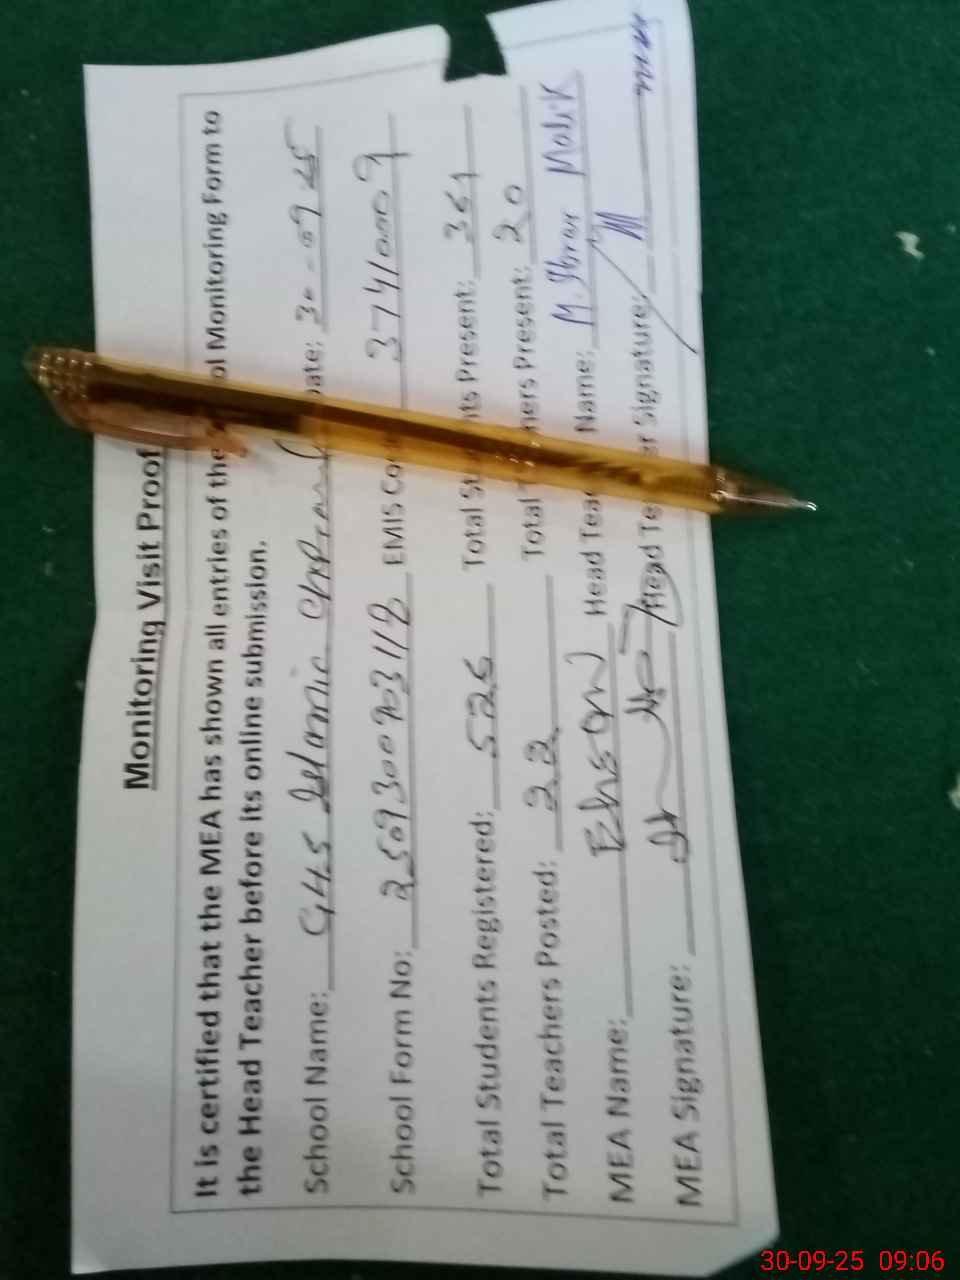 Monitoring Visit Proof
It is certified that the MEA has shown all entries of the ol Monitoring Form to
the Head Teacher before its online submission.
School Name: GHS Islamic Date: 30-09-25
School Form No: 2509300903112 EMIS Co 37410009
Total Students Registered: 526 Total St ts Present: 361
Total Teachers Posted: 22 Total T hers Present: 20
MEA Name: Ehsan Head Teac Name: M. Ibrar Malik
MEA Signature: Head Te er Signature:
30-09-25 09:06